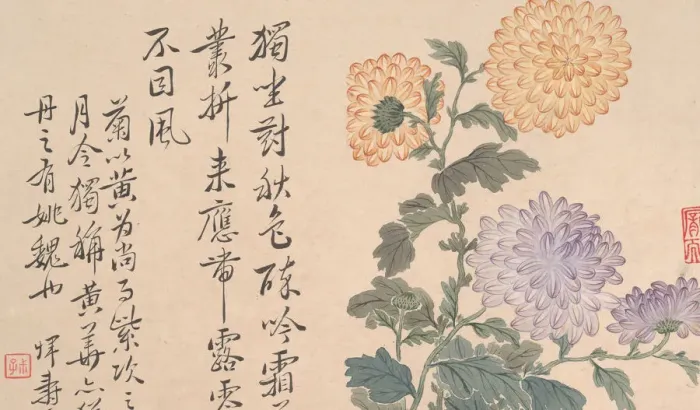 獨坐對秋色酔吟霜
叢拆来應帯露零
不因風
菊以黄为尚而紫次之
月令獨稱黄華亦猶
丹之有姚魏也
惲壽